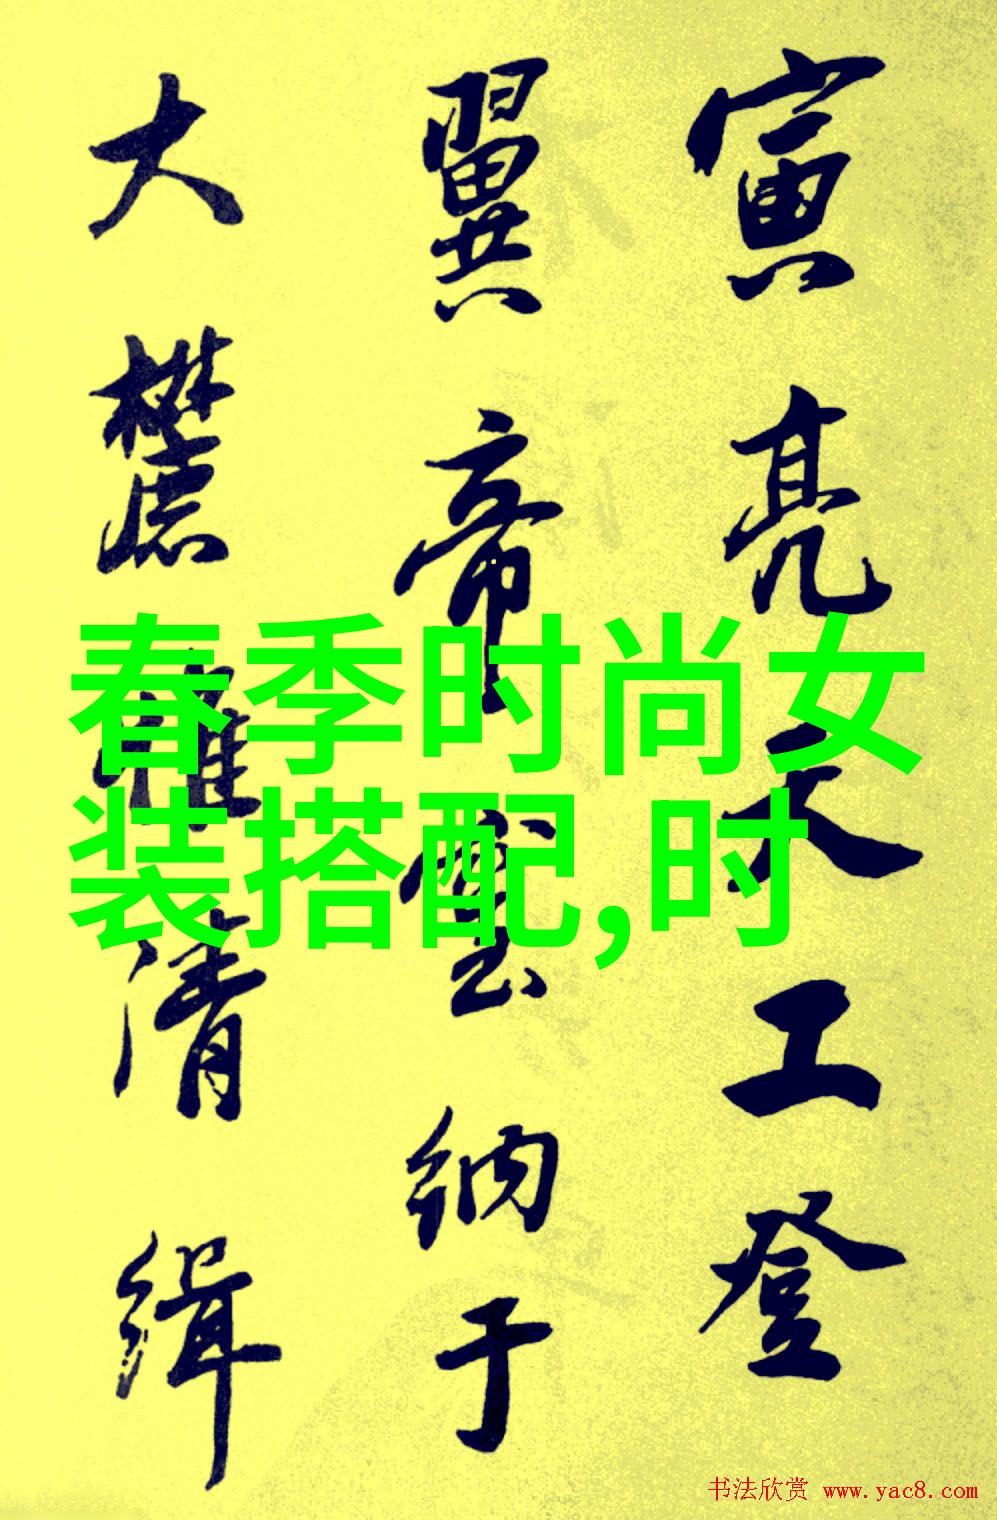 寅亮天工登
翼帝室纳于
大麓雍清缉
春季时尚女
装搭配,时
书法欣赏 www.yac8.com